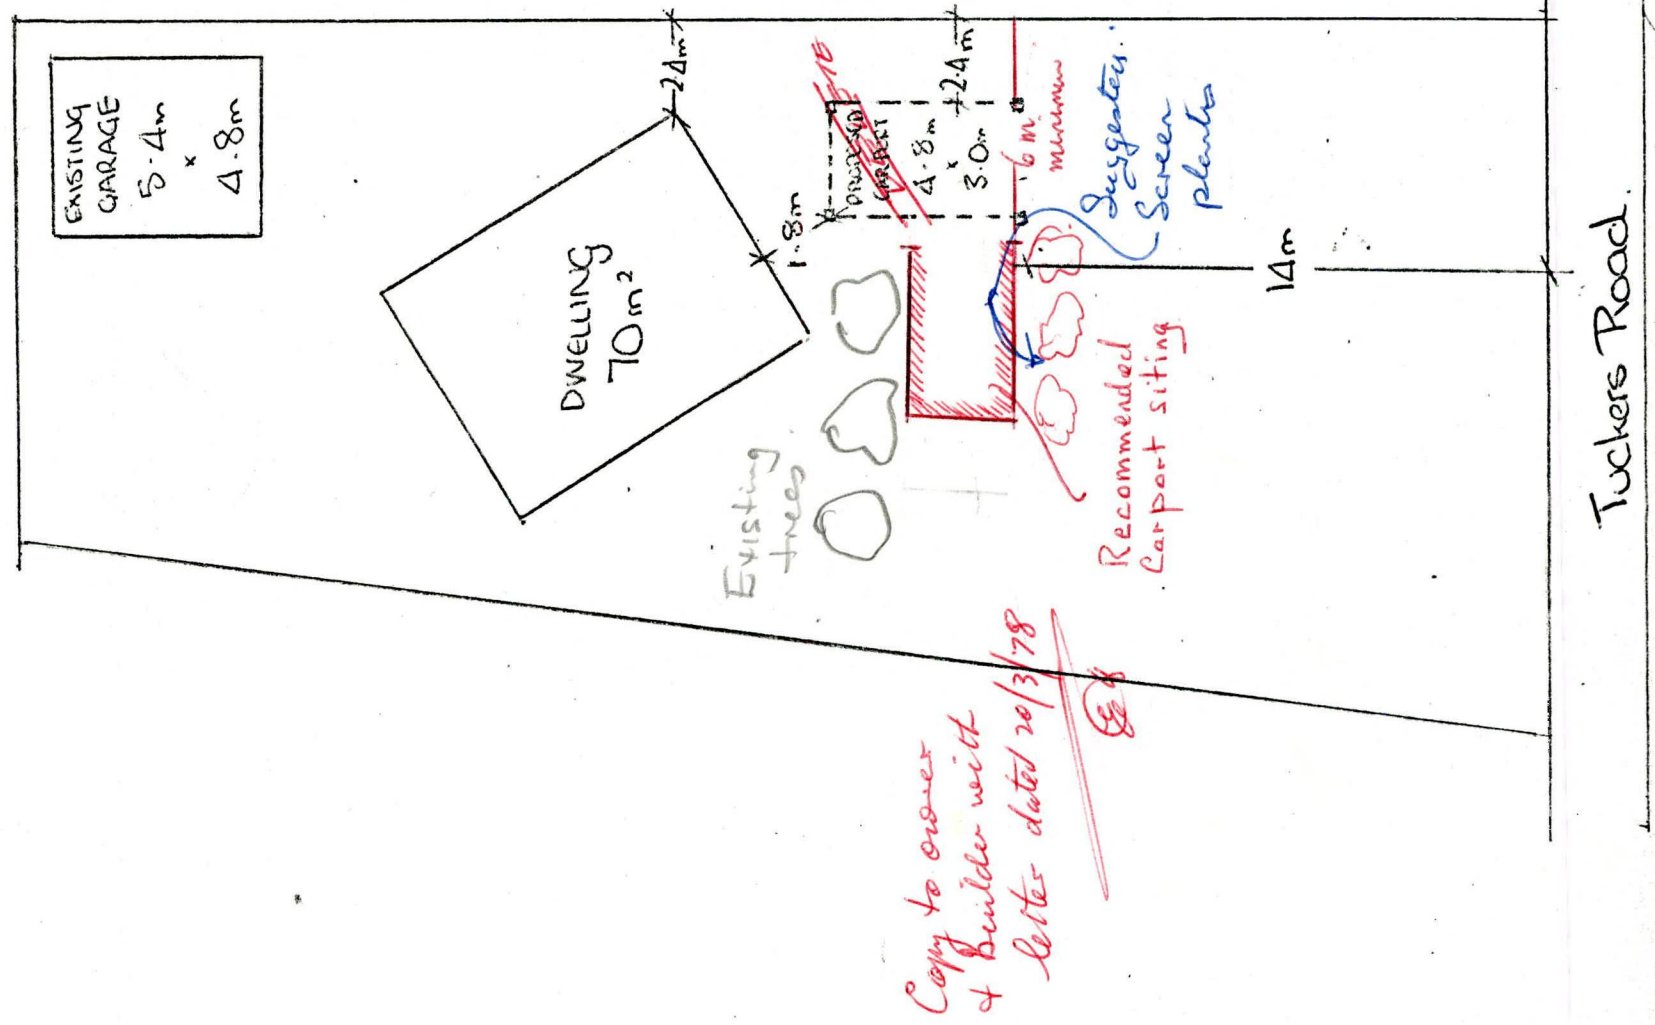 EXISTING
GARAGE
5.4m
x
4.8m
2.4m
DWELLING
70m²
1.8m
PROPOSED
CARPORT
4.8m
x
3.0m
2.4m
6m
minimum
Suggested
Screen
plants
14m
Existing
trees
Recommended
Carport siting
Copy to owner
& Builder with
letter dated 20/3/78
Tuckers Road.